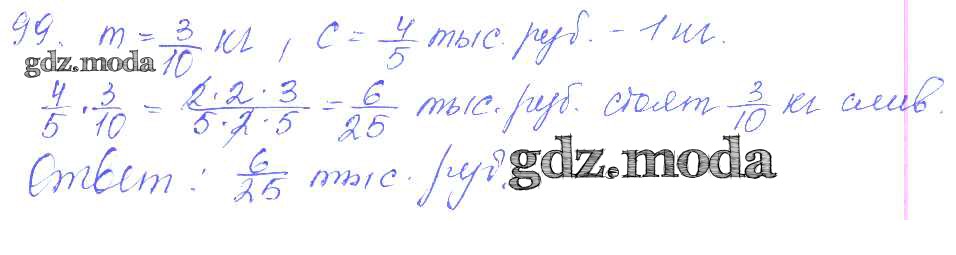 99. m = 3/10 кг, c = 4/5 тыс. руб. - 1 кг.
gdz.moda
4/5 · 3/10 = 2·2·3/5·2·5 = 6/25 тыс. руб. стоят 3/10 кг слив.
Ответ: 6/25 тыс. руб.
gdz.moda